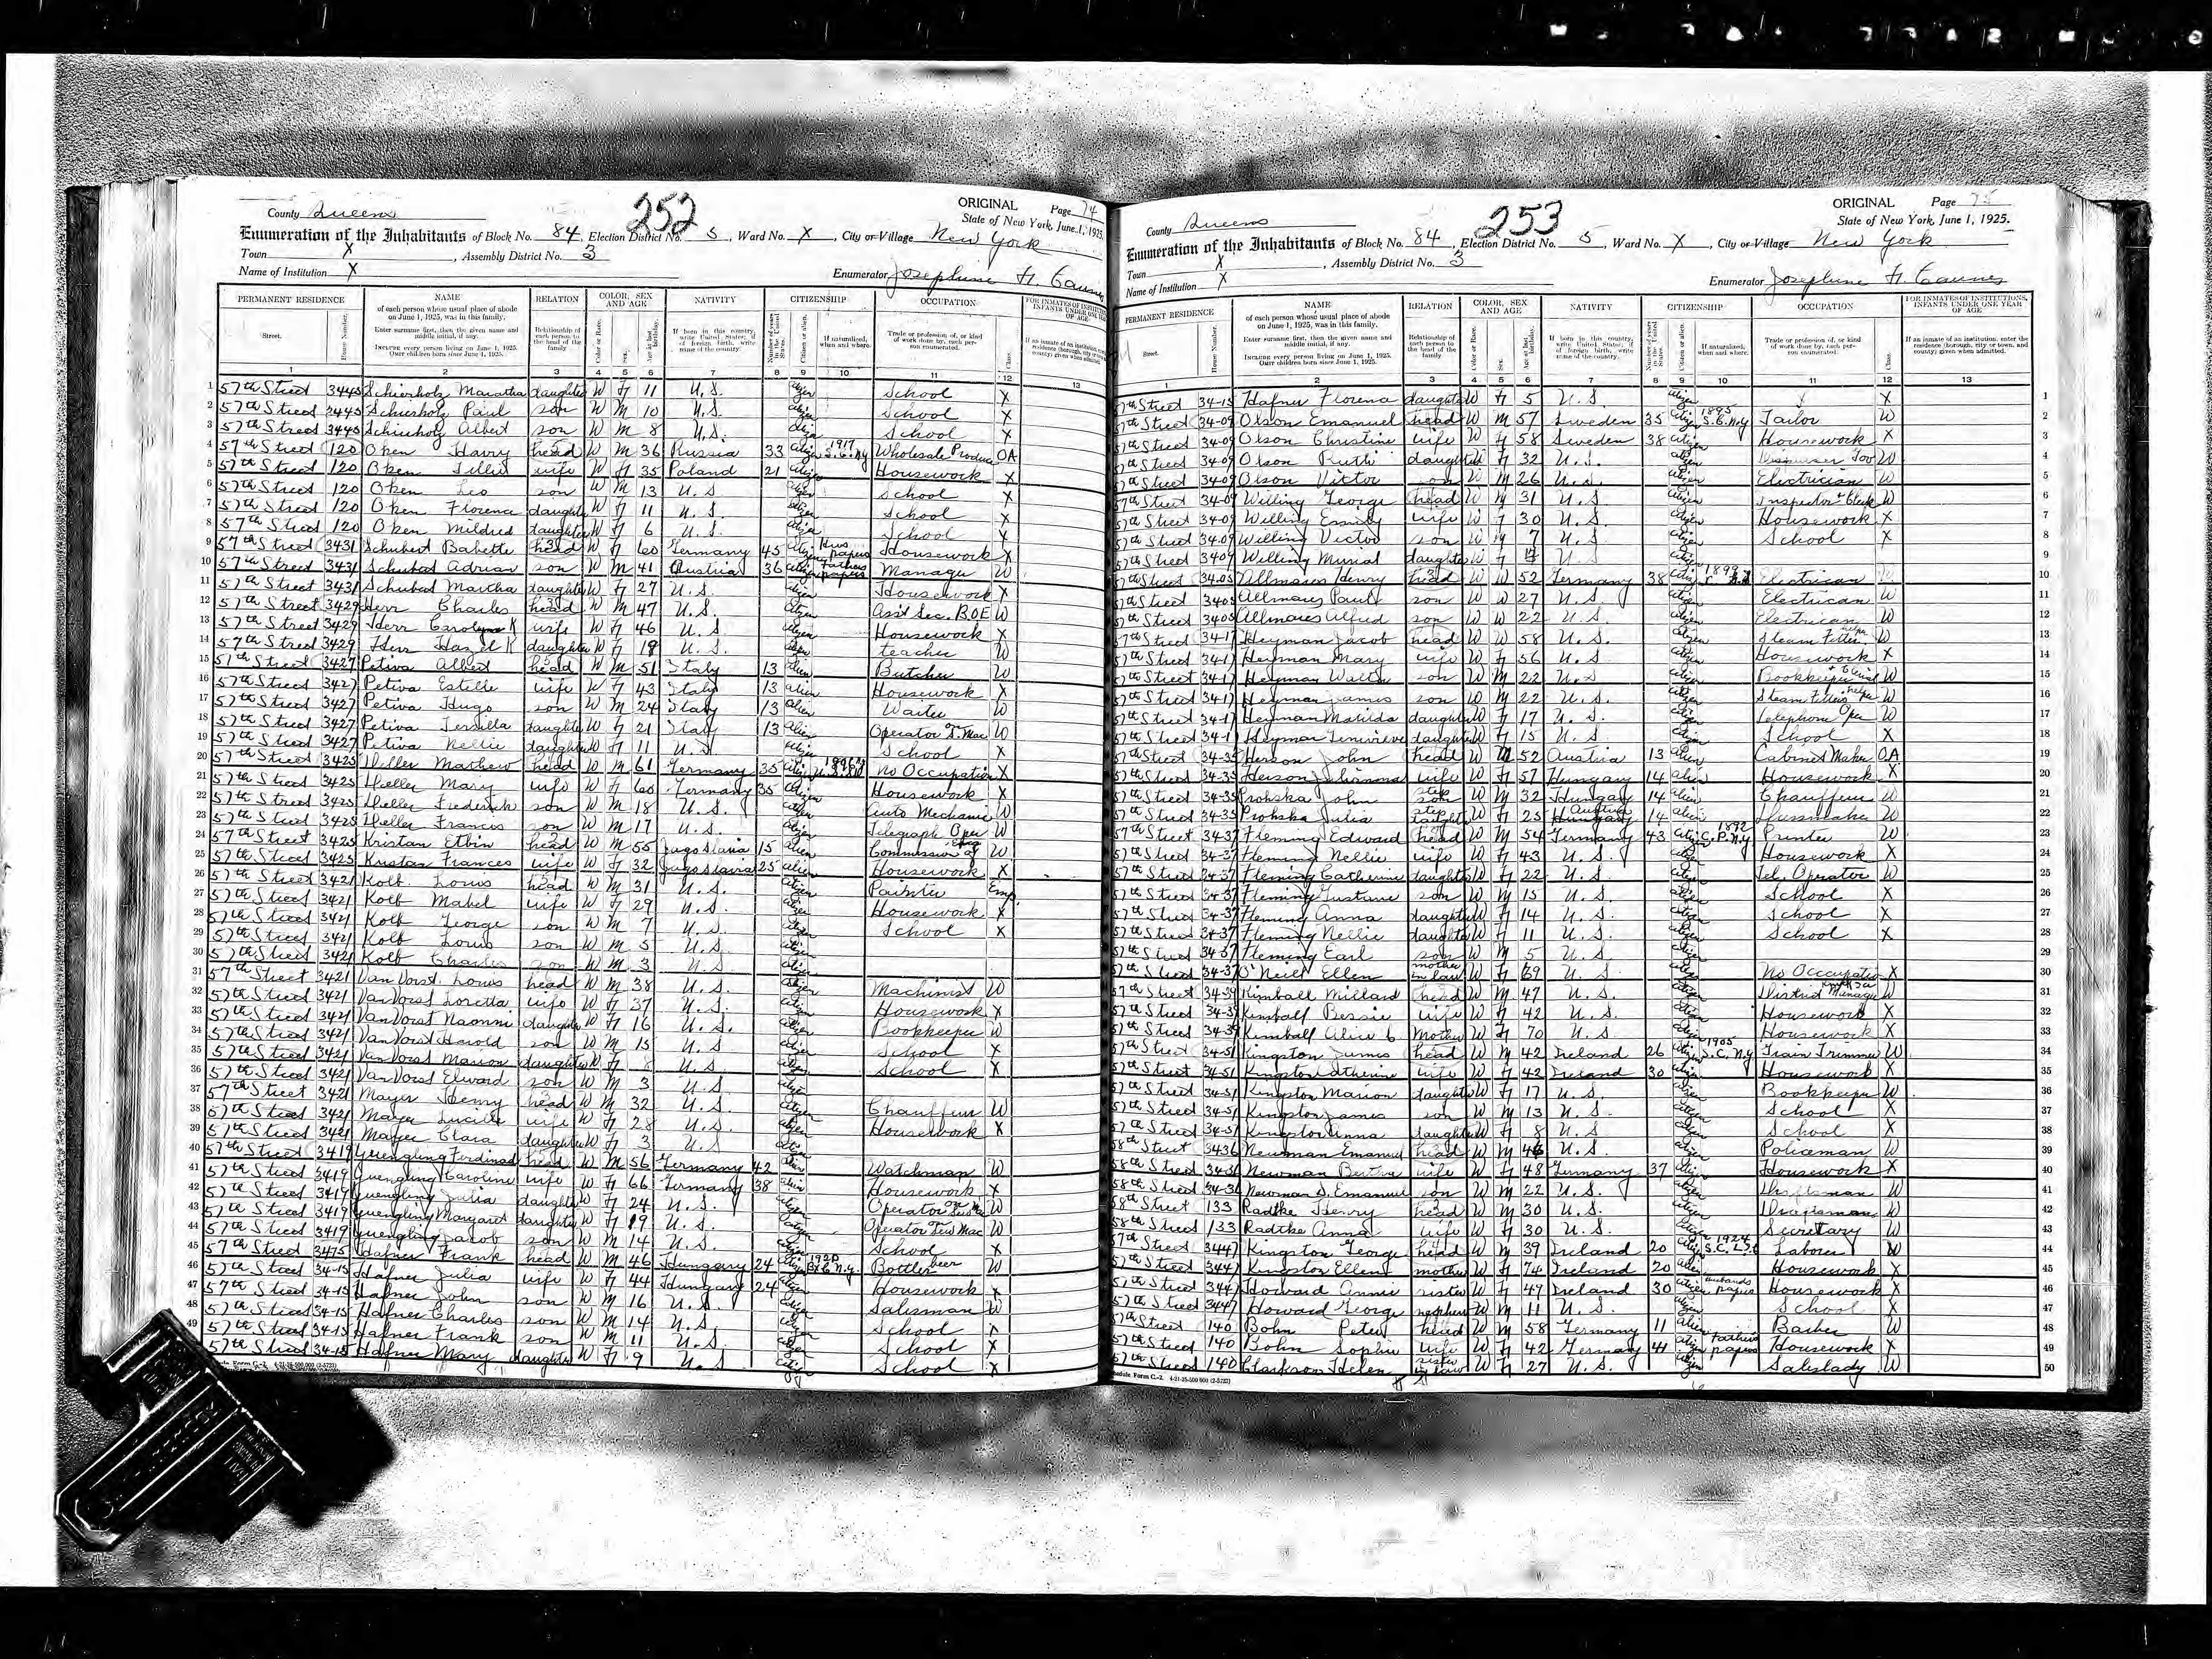 252
ORIGINAL Page 74
County Queens
State of New York, June 1, 1925.
Enumeration of the Inhabitants of Block No. 84, Election District No. 5, Ward No. X, City or Village New York
Town X, Assembly District No. 3
Name of Institution X
Enumerator Josephine H.
PERMANENT RESIDENCE NAME RELATION COLOR, SEX AND AGE NATIVITY CITIZENSHIP OCCUPATION
1 57th Street 3445 Schierholz Maratha daughter W F 11 U.S. Citizen School X
2 57th Street 3445 Schierholz Paul son W M 10 U.S. Citizen School X
3 57th Street 3445 Schierholz Albert son W M 8 U.S. Citizen School X
4 57th Street 120 Oken Harry head W M 36 Russia 33 Citizen 1917 S.C. NY Wholesale Produce OA
5 57th Street 120 Oken Tillie wife W F 35 Poland 21 Citizen Housework X
6 57th Street 120 Oken Leo son W M 13 U.S Citizen School X
7 57th Street 120 Oken Florence daughter W F 11 U.S. Citizen School X
8 57th Street 120 Oken Mildred daughter W F 6 U.S. Citizen School X
9 57th Street 3431 Schubert Babette head W F 60 Germany 45 Citizen papers Housework X
10 57th Street 3431 Schubert Adrian son W M 41 Austria 36 Citizen Fathers papers Manager W
11 57th Street 3431 Schubert Martha daughter W F 27 U.S. Citizen Housework X
12 57th Street 3429 Herr Charles head W M 47 U.S. Citizen Ass't Sec. B.O.E W
13 57th Street 3429 Herr Carolyn K wife W F 46 U.S Citizen Housework X
14 57th Street 3429 Herr Hazel K daughter W F U.S Citizen teacher W
15 57th Street 3427 Petiva Albert head W M 51 Italy 13 alien Butcher W
16 57th Street 3427 Petiva Estelle wife W F 43 Italy 13 alien Housework X
17 57th Street 3427 Petiva Hugo son W M 24 Italy 13 Alien Waiter W
18 57th Street 3427 Petiva daughter W F 21 Italy 13 Alien Operator on S. Mac W
19 57th Street 3427 Petiva Nellie daughter W F 11 U.S Citizen School X
20 57th Street 3425 Heller Mathew head W M 61 Germany 35 Citizen 1896 No Occupation X
21 57th Street 3425 Heller Mary wife W F 60 Germany 35 Citizen Housework X
22 57th Street 3425 Heller Frederick son W M 18 U.S. Citizen Auto Mechanic W
23 57th Street 3425 Heller Francis son W M 17 U.S. Citizen Telegraph Oper W
24 57th Street 3425 Kristan Etbin head W M 55 Jugoslavia 15 alien W
25 57th Street 3425 Kristan Frances wife W F 32 Jugoslavia 25 alien Housework X
26 57th Street 3421 Kolb Louis head W M 31 U.S. Citizen Painter Emp
27 57th Street 3421 Kolb Mabel wife W F 29 U.S. Citizen Housework X
28 57th Street 3421 Kolb George son W M 7 U.S. Citizen School X
29 57th Street 3421 Kolb Louis son W M 5 U.S. Citizen
30 57th Street 3421 Kolb Charles son W M 3 U.S Citizen
31 57th Street 3421 Van Vorst Louis head W M 38 U.S. Citizen Machinist W
32 57th Street 3421 Van Vorst Loretta wife W F 37 U.S. Citizen Housework X
33 57th Street 3421 Van Vorst Naomi daughter W F 16 U.S. Citizen Bookkeeper W
34 57th Street 3421 Van Vorst Harold son W M 15 U.S Citizen School X
35 57th Street 3421 Van Vorst Marion daughter W F 8 U.S. Citizen School X
36 57th Street 3421 Van Vorst Edward son W M 3 U.S Citizen
37 57th Street 3421 Mayer Henry head W M 32 U.S. Citizen Chauffeur W
38 57th Street 3421 Mayer Lucille wife W F 28 U.S. Citizen Housework X
39 57th Street 3421 Mayer Clara daughter W F 3 U.S Citizen
40 57th Street 3419 Yuengling Ferdinad head W M 56 Germany 42 alien Watchman W
41 57th Street 3419 Yuengling Caroline wife W F 66 Germany 38 alien Housework X
42 57th Street 3419 Yuengling Julia daughter W F 24 U.S. Citizen Operator W
43 57th Street 3419 Yuengling Margaret daughter W F 19 U.S. Citizen Operator Mac W
44 57th Street 3419 Yuengling Jacob son W M 14 U.S. Citizen School X
45 57th Street 3415 Hafner Frank head W M 46 Hungary 24 Citizen 1920 N.Y. Bottler beer W
46 57th Street 34-15 Hafner Julia wife W F 44 Hungary 24 Citizen Housework X
47 57th Street 34-15 Hafner John son W M 16 U.S. Citizen Salesman W
48 57th Street 34-15 Hafner Charles son W M 14 U.S. Citizen School X
49 57th Street 34-15 Hafner Frank son W M 11 U.S. Citizen School X
57th Street 34-15 Hafner Mary daughter W F 9 U.S Citizen School X
253
ORIGINAL Page
County Queens
State of New York, June 1, 1925.
Enumeration of the Inhabitants of Block No. 84, Election District No. 5, Ward No. X, City or Village New York
Town X, Assembly District No. 3
Name of Institution X
Enumerator Josephine H.
PERMANENT RESIDENCE NAME RELATION COLOR, SEX AND AGE NATIVITY CITIZENSHIP OCCUPATION FOR INMATES OF INSTITUTIONS, INFANTS UNDER ONE YEAR OF AGE
57th Street 34-15 Hafner Florena daughter W F 5 U.S Citizen X 1
57th Street 34-09 Olson Emanuel head W M 57 Sweden 35 Citizen 1895 S.C. N.Y Tailor W 2
57th Street 34-09 Olson Christine wife W F 58 Sweden 38 Citizen Housework X 3
57th Street 34-09 Olson Ruth daughter W F 32 U.S. Citizen W 4
57th Street 34-09 Olson Victor son W M 26 U.S. Citizen Electrician W 5
57th Street 34-09 Willing George head W M 31 U.S Citizen Inspector Clerk W 6
57th Street 34-09 Willing wife W F 30 U.S. Citizen Housework X 7
57th Street 34-09 Willing Victor son W M 7 U.S Citizen School X 8
57th Street 3409 Willing Murial daughter W F U.S Citizen 9
57th Street 34-05 Henry head W W 52 Germany 38 1899 Electrican 10
57th Street 3405 Paul son W W 27 U.S Citizen Electrican W 11
57th Street 3405 Alfred son W W 22 U.S. Citizen Electrican W 12
57th Street 34-17 Heyman Jacob head W W 58 U.S. Citizen Steam Fitter helper W 13
57th Street 34-17 Heyman Mary wife W F 56 U.S Citizen Housework X 14
57th Street 34-17 Heyman Walter son W M 22 U.S Citizen Bookkeeper W 15
57th Street 34-17 Heyman James son W M 22 U.S. Citizen Steam Fitters helper W 16
57th Street 34-17 Heyman Matilda daughter W F 17 U.S. Citizen Telephone Oper W 17
57th Street 34-17 Heyman Genevieve daughter W F 15 U.S. Citizen School X 18
57th Street 34-35 John head W M 52 Austria 13 alien Cabinet Maker OA 19
57th Street 34-35 wife W F 57 Hungary 14 alien Housework X 20
57th Street 34-35 Prohska John step son W M 32 Hungary 14 alien Chauffeur W 21
57th Street 34-35 Prohska Julia step daughter W F 25 Austria 14 alien Dressmaker W 22
57th Street 34-37 Fleming Edward head W M 54 Germany 43 Citizen 1892 C.P. N.Y. Printer W 23
57th Street 34-37 Fleming Nellie wife W F 43 U.S. Citizen Housework X 24
57th Street 34-37 Fleming Catherine daughter W F 22 U.S. Citizen Tel. Operator W 25
57th Street 34-37 Fleming Gustave son W M 15 U.S. Citizen School X 26
57th Street 34-37 Fleming Anna daughter W F 14 U.S. Citizen School X 27
57th Street 34-37 Fleming Nellie daughter W F 11 U.S. Citizen School X 28
57th Street 34-37 Fleming Earl son W M 5 U.S. Citizen 29
57th Street 34-37 O'Neill Ellen mother in law W F 69 U.S. Citizen No Occupatio X 30
57th Street 34-39 Kimball Millard head W M 47 U.S. Citizen District Manager W 31
57th Street 34-39 Kimball Bessie wife W F 42 U.S. Citizen Housework X 32
57th Street 34-39 Kimball Alice C mother W F 70 U.S Citizen Housework X 33
57th Street 34-51 Kingston James head W M 42 Ireland 26 Citizen 1905 S.C. N.Y Train Trimmer W 34
57th Street 34-51 Kingston Catherine wife W F 42 Ireland 30 Citizen Housework X 35
57th Street 34-51 Kingston Marion daughter W F 17 U.S Citizen Bookkeeper W 36
57th Street 34-51 Kingston James son W M 13 U.S. Citizen School X 37
57th Street 34-51 Kingston Anna daughter W F 8 U.S Citizen School X 38
58th Street 3436 Newman Emanuel head W M 46 U.S. Citizen Policeman W 39
58th Street 34-36 Newman Bertha wife W F 48 Germany 37 Citizen Housework X 40
58th Street 34-36 Newman S. Emanuel son W M 22 U.S. Citizen Draftsman W 41
58th Street 133 Radtke Henry head W M 30 U.S. Citizen Draftsman W 42
58th Street 133 Radtke Anna wife W F 30 U.S. Citizen Secretary W 43
57th Street 3447 Kingston George head W M 39 Ireland 20 Citizen 1924 S.C. Laborer W 44
57th Street 3447 Kingston Ellen mother W F 74 Ireland 20 alien Housework X 45
57th Street 3447 Howard Annie sister W F 47 Ireland 30 Citizen husbands papers Housework X 46
57th Street 3447 Howard George nephew W M 11 U.S. Citizen School X 47
57th Street 140 Bohn Peter head W M 58 Germany 11 alien Barber W 48
57th Street 140 Bohn Sophie wife W F 42 Germany 41 Citizen Fathers papers Housework X 49
57th Street 140 Clarkson Helen sister in law W F 27 U.S. Citizen Saleslady W 50